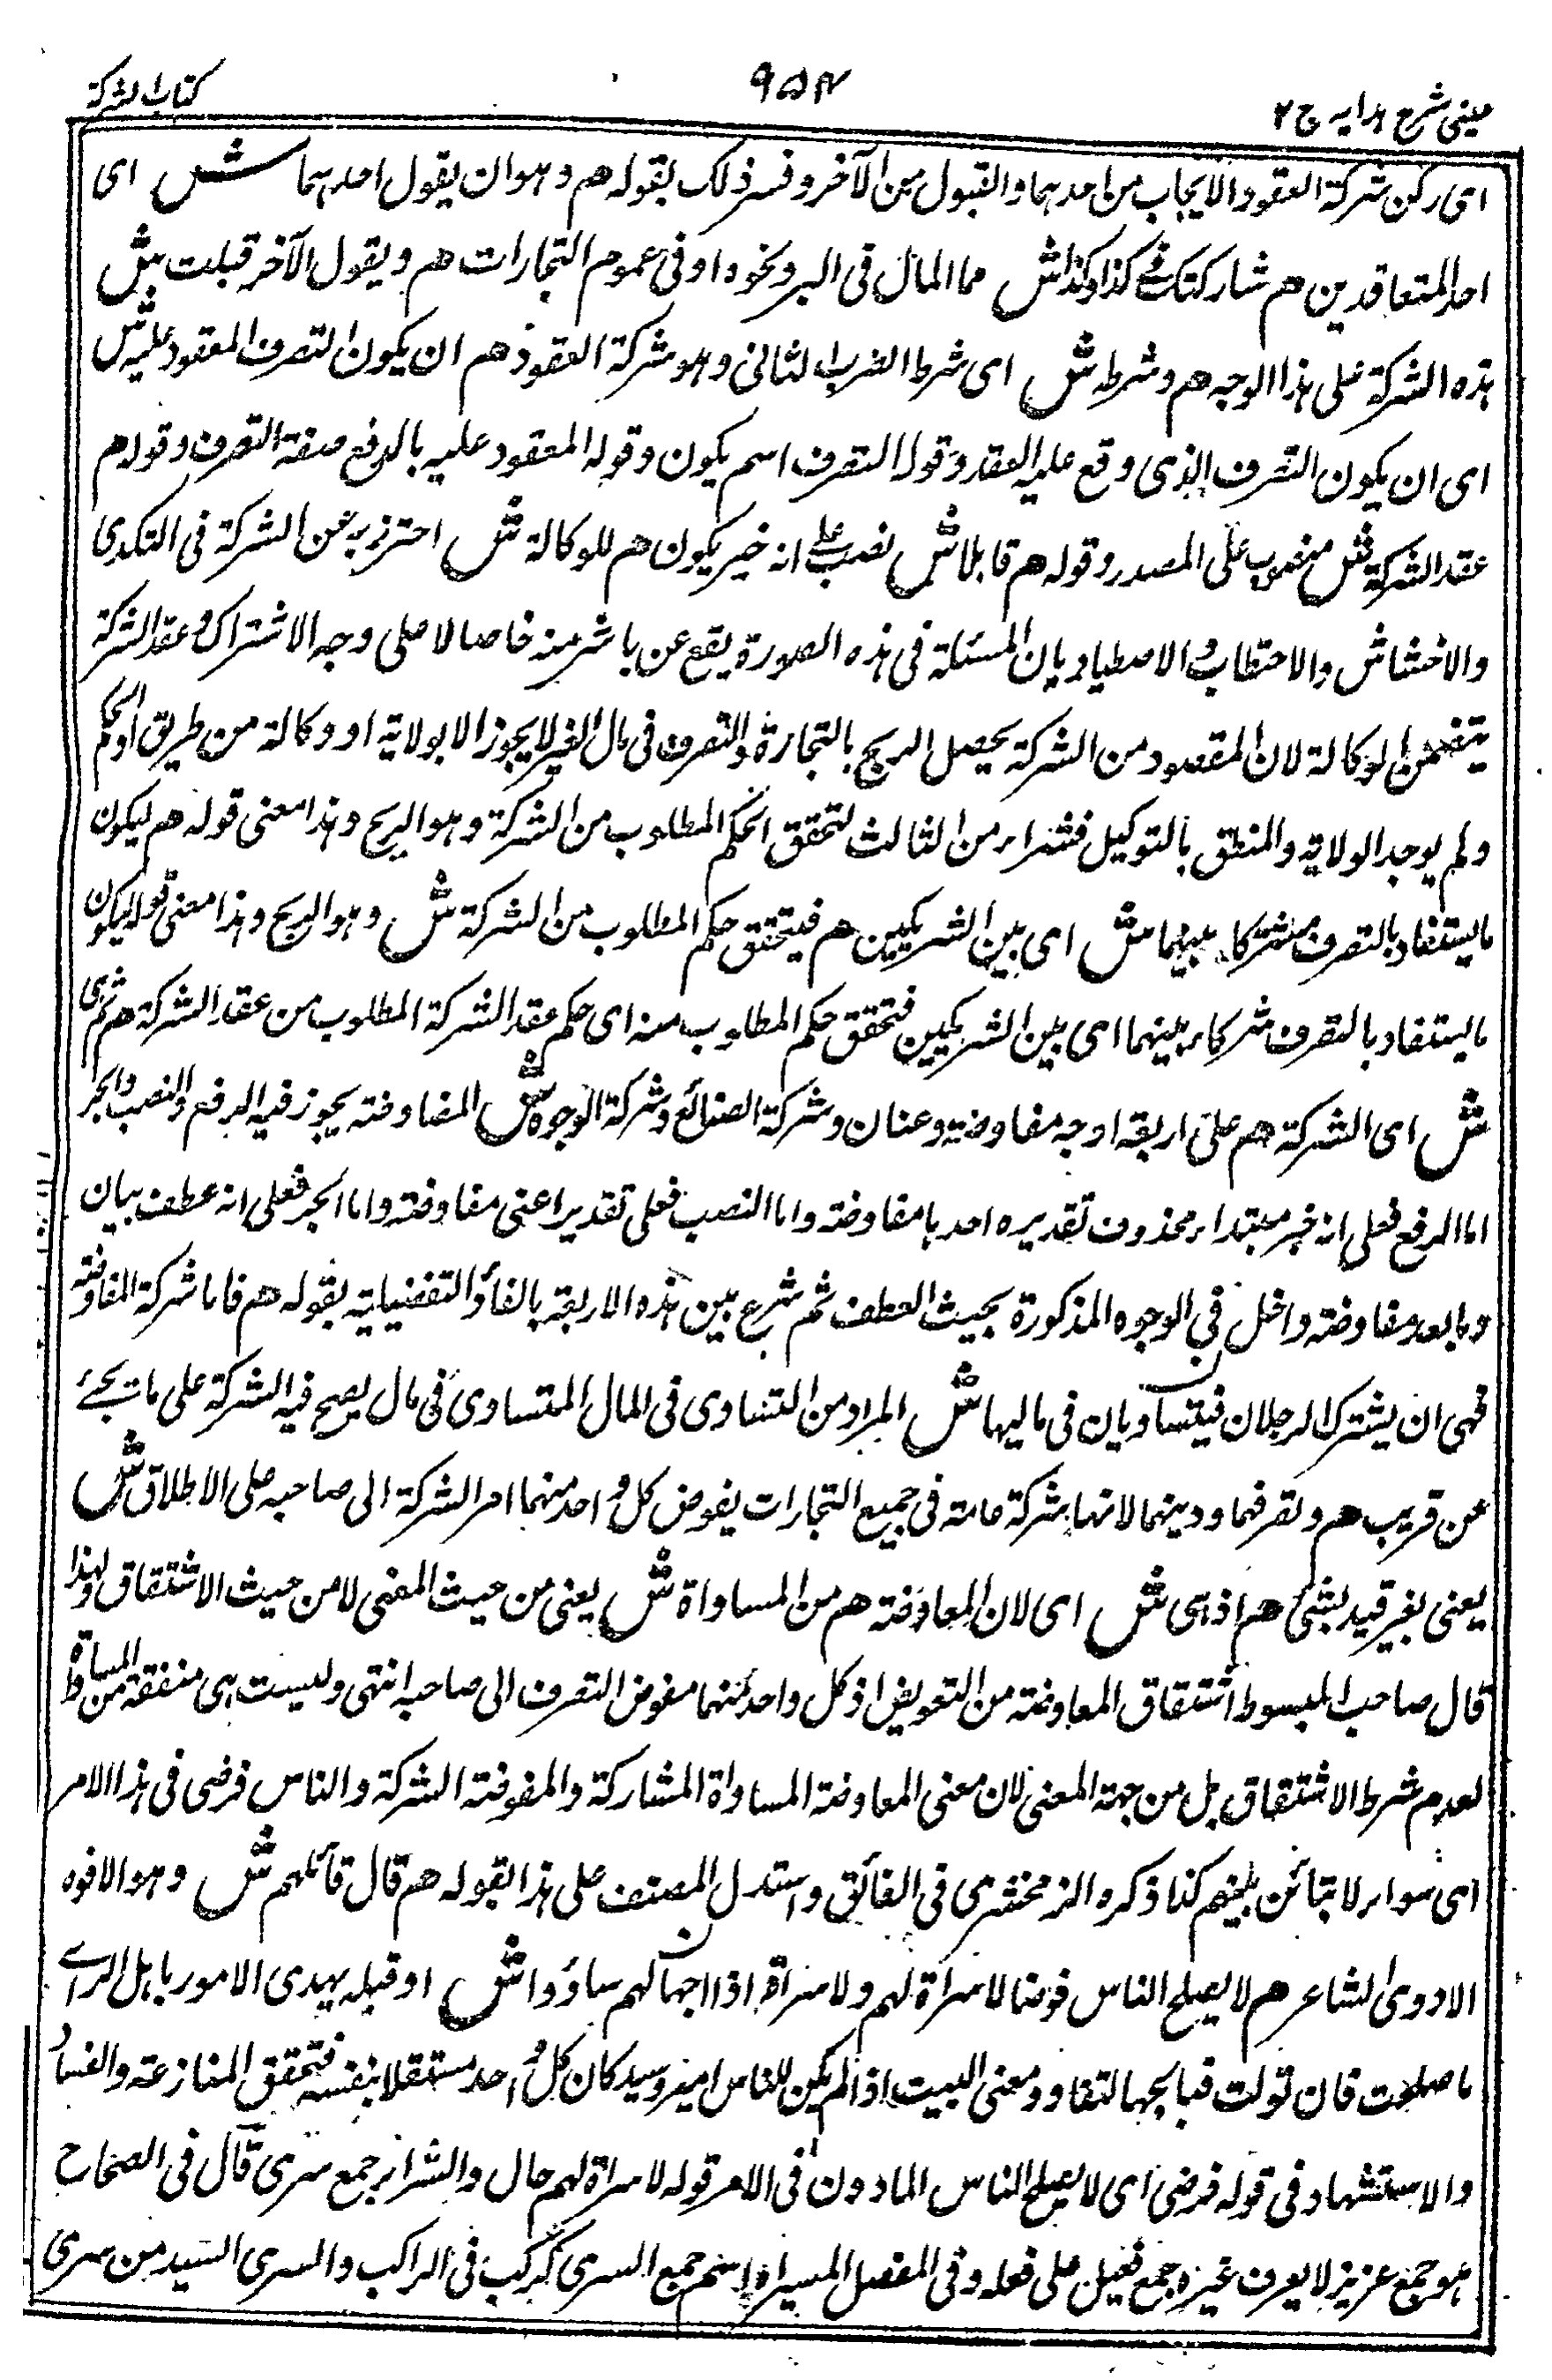 عینی شرح ہدایہ ج ۲
۹۵۴
کتاب الشرکۃ
ای رکن شرکۃ العقود الایجاب من احدہما والقبول من الآخر وفسر ذلک بقولہ ھم وہو ان یقول احدہما ش ای
احد المتعاقدین ھم شارکتک فی کذا وکذا ش مما المال فی البر ونحوہ او فی عموم التجارات ھم ویقول الآخر قبلت ش
ہذہ الشرکۃ علی ہذا الوجہ ھم وشرطہ ش ای شرط الضرب الثانی وہو شرکۃ العقود ھم ان یکون التصرف المعقود علیہ ش
ای ان یکون التصرف الذی وقع علیہ العقد وقولہ التصرف اسم یکون وقولہ المعقود علیہ بالرفع صفۃ التصرف وقولہ ھم
عقد الشرکۃ ش منصوب علی المصدر وقولہ ھم قابلا ش نصب علی انہ خبر یکون ھم للوکالۃ ش احترز بہ عن الشرکۃ فی التکدی
والاخشاش والاحتطاب والاصطیاد بان المسئلۃ فی ہذہ الصورۃ یقع عن باشر منہ خاصا لا علی وجہ الاشتراک وعقد الشرکۃ
یتضمن الوکالۃ لان المقصود من الشرکۃ یحصل الربح بالتجارۃ والتصرف فی مال الغیر لا یجوز الا بولایۃ او وکالۃ من طریق الحکم
ولم یوجد الولایۃ والمنطق بالتوکیل فشراء من الثالث لتحقق الحکم المطلوب من الشرکۃ وہو الربح وہذا معنی قولہ ھم لیکون
ما یستفاد بالتصرف مشترکا بینہما ش ای بین الشریکین ھم فیتحقق حکم المطلوب من الشرکۃ ش وہو الربح وہذا معنی قولہ لیکون
ما یستفاد بالتصرف شرکاء بینہما ای بین الشریکین فتحقق حکم المطلوب منہ ای حکم عقد الشرکۃ المطلوب من عقد الشرکۃ ھم ثم ہی
ش ای الشرکۃ ھم علی اربعۃ اوجہ مفاوضۃ وعنان وشرکۃ الصنائع وشرکۃ الوجوہ ش المفاوضۃ یجوز فیہ الرفع والنصب والجر
اما الرفع فعلی انہ خبر مبتداء محذوف تقدیرہ احدہا مفاوضۃ واما النصب فعلی تقدیر اعنی مفاوضۃ واما الجر فعلی انہ عطف بیان
وما بعد مفاوضۃ داخل فی الوجوہ المذکورۃ بحیث العطف ثم شرع یبین ہذہ الاربعۃ بالفاء التفضیلیۃ بقولہ ھم فاما شرکۃ المفاوضۃ
فہی ان یشترک الرجلان فیتساویان فی مالیہا ش المراد من التساوی فی المال المتساوی فی مال یصح فیہ الشرکۃ علی ما یجئ
عن قریب ھم وتصرفہما ودینہما لانہا شرکۃ عامۃ فی جمیع التجارات یفوض کل واحد منہما امر الشرکۃ الی صاحبہ علی الاطلاق ش
یعنی بغیر قید بشئ ھم اذ ہی ش ای لان المعاوضۃ ھم من المساواۃ ش یعنی من حیث المعنی لا من حیث الاشتقاق ولہذا
قال صاحب المبسوط اشتقاق المعاوضۃ من التعویض اذ کل واحد منہما مفوض التصرف الی صاحبہ انتہی ولیست ہی منفقۃ من المساواۃ
لعدم شرط الاشتقاق بل من جہۃ المعنی لان معنی المعاوضۃ المساواۃ المشارکۃ والمفوضۃ الشرکۃ والناس فرضی فی ہذا الامر
ای سواء لا تبائن بینہم کذا ذکرہ الزمخشری فی الفائق واستدل المصنف علی ہذا بقولہ ھم قال قائلہم ش وہو الافوہ
الاودی الشاعر ھم لا یصلح الناس فوضا لا سراۃ لہم ولا سراۃ اذا جہالہم سادوا ش او قبلہ یہدی الامور باہل الرای
ما صلحت فان تولت فبا لجہا لتفاو ومعنی البیت اذا لم یکن للناس امیر وسید کان کل احد مستقلا بنفسہ فتحقق المنازعۃ والفساد
والاستشہاد فی قولہ فرضی ای لا یصلح الناس المادون فی الامر قولہ لا سراۃ لہم حال والسراۃ جمع سری قال فی الصحاح
ہو جمع عزیز لا یعرف غیرہ جمع فعیل علی فعلہ وفی المفصل السراۃ اسم جمع السری کرکب فی الراکب والسری السید من سری